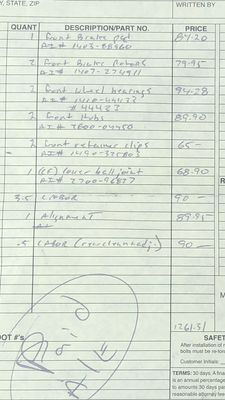 Y, STATE, ZIP WRITTEN BY
QUANT DESCRIPTION/PART NO. PRICE
1 front Brake pad 84.20
AI# 1403-88360
2 front Brake Rotors 79.95
AI# 1407-274911
2 front wheel bearings 94.28
AI# 1410-44433
# 44433
2 front Hubs 89.90
AI# 7800-04450
2 front retainer clips 65—
AI# 1490-321803
1 (RF) lower ball joint 68.90
AI# 2700-96877
3.5 LABOR 90—
1 Alignment 89.95
.5 LABOR (rear clean &adj.) 90—
1261.31
OOT #'s SAFET
After installation of
bolts must be re-tor
Customer Initials:
TERMS: 30 days. A fina
is an annual percentage
to amounts 30 days pas
reasonable attorney fees
Paid